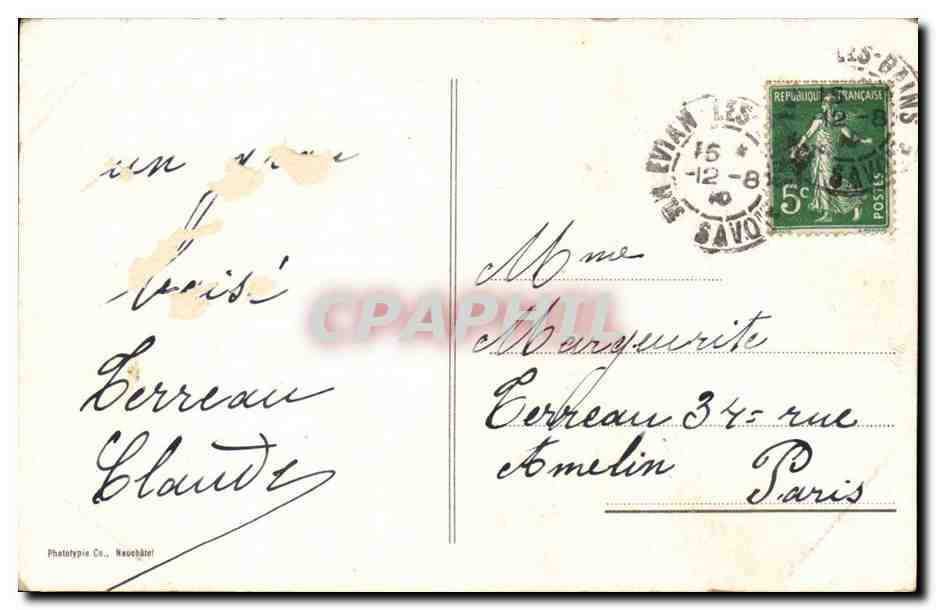 un
boisé
Terreau
Claude
Phototypie Co., Neuchâtel
EVIAN LES-
15 *
-12 -8
SAVOIE
LES-BAINS
RÉPUBLIQUE FRANÇAISE
15
12 -8
5c
POSTES
Mme
Margeurite
Terreau 34= rue
Amelin Paris
CPAPHIL